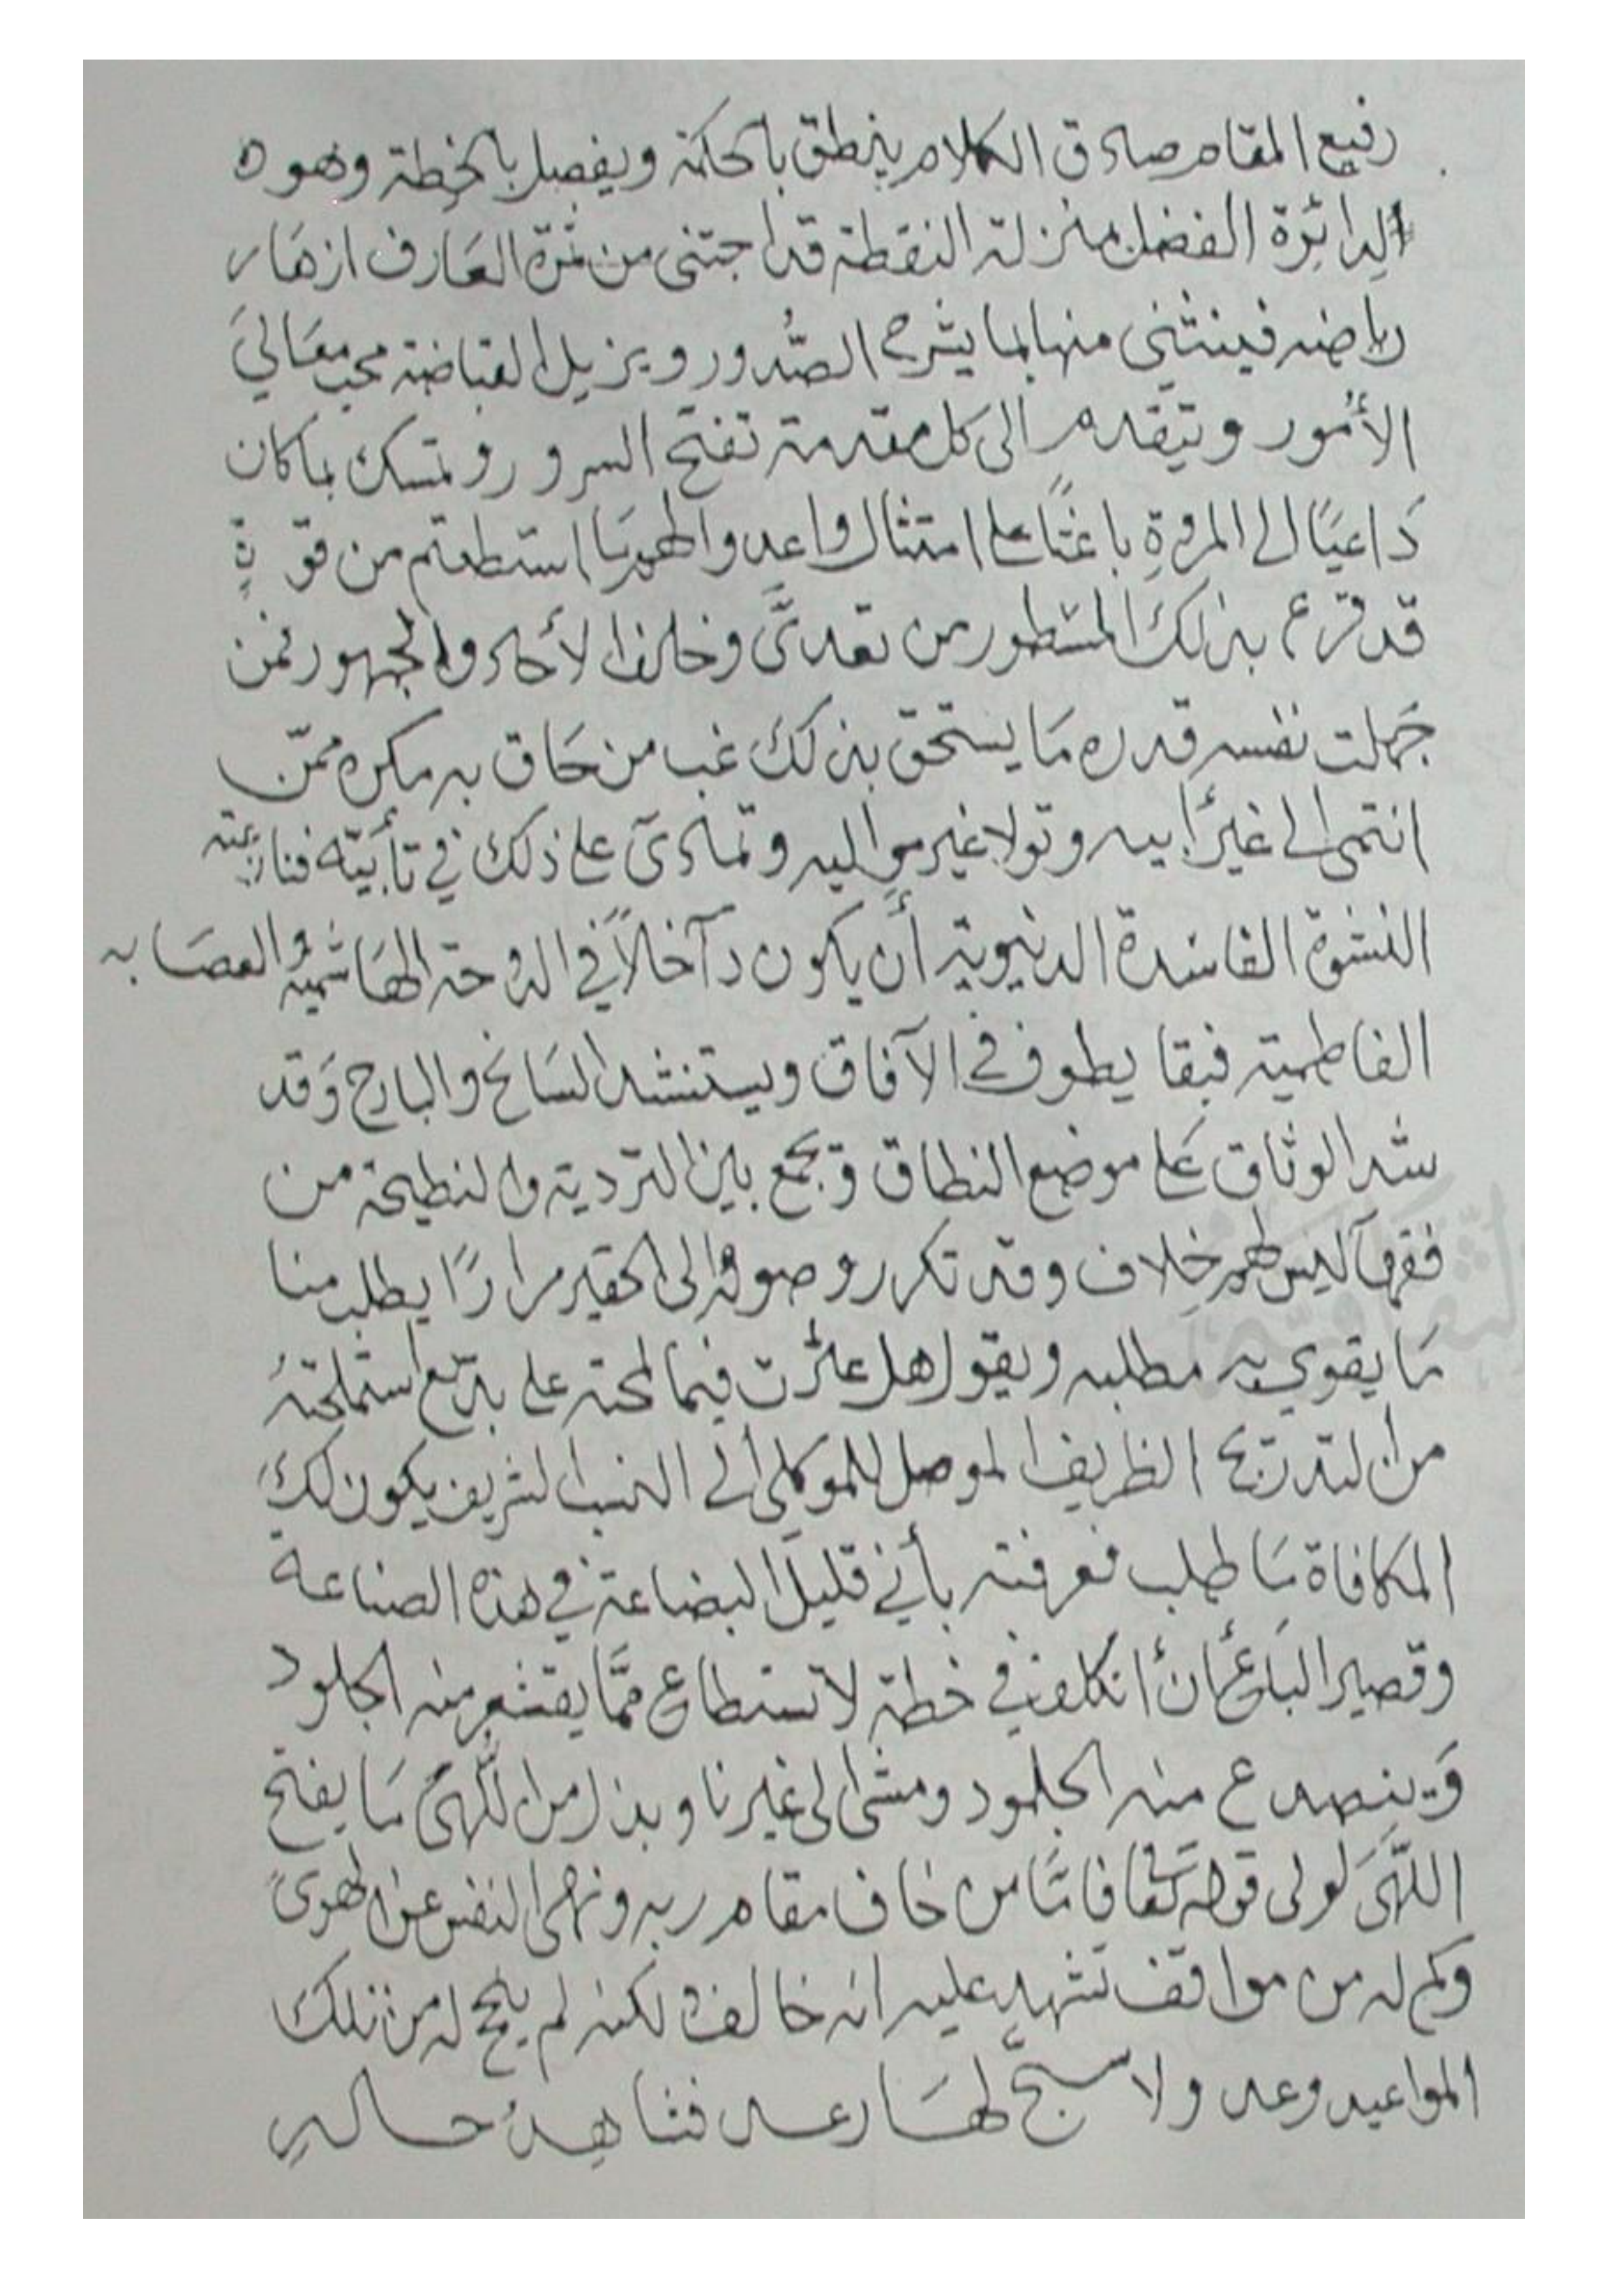 رفيع المقام صادق الكلام ينطق بالحكمة ويفصل بالخطة وهو ه
الدائرة الفضل منزلة النقطة قد اجتنى من ثمرة العارف ازهار
رياضه فينثني منها بما يشرح الصُّدور ويزيل القباضة محب معَاليَ
الأمُور ويتقدم الى كل مقدمة تفتح السرور وتمسك بما كان
دَاعيًا الى المروة باعثًا على امتثال واعدوا لهم مَا استطعتم من قوة
قد قرع بذلك المسْطور من تعدىَّ وخالف الأحاد والجمهور فمن
جَهلت نفسه قدره مَا يستحق بذلك غب من حَاق به مكره ممّن
انتمى الى غير أبيه وتولا غير مواليه وتمادىَ على ذلك في تأبيّه
النشوة الفاسدة الدنيوية أن يكون دآخلاً في الدوحة الهَاشميه والعصَابه
الفاطمية فبقا يطوف في الآفاق ويستنشد السَانح والبارح وَقد
شد الوثاق عَلى موضع النطاق وَجمع بين التردية والنطيحة من
فقهآ ليس لهم خِلاف وقد تكرر وصوله الى الحقير مرارًا يطلب منا
مَا يقوي به مطلبه ويقول هل عثرت فيما لمحته على بديع استملحتهُ
من التدريج الظريف الموصل للموكلي الى النسب الشريف يكون لك
المكافاة مَا طلب فعرفته بأني قليل البضاعة في هذه الصناعة
وقصير البَاع عَن أن أتكلف في خطة لا تستطاع ممَّا يقشعر منه الجلود
وَينصدع منه الجلمود ومشى الى غيرنا وبذل من اللُّهىَ مَا يفتح
اللَّهىَ لولى قوله تعَالى فامَّا من خاف مقام ربه ونهى النفس عن الهوىَ
وكم له من مواقف تشهد عليه انه خالف لكنه لم ينجح له من تلك
المواعيد وعد ولا سبحّ لهَا رعد فشاهدُ حاله